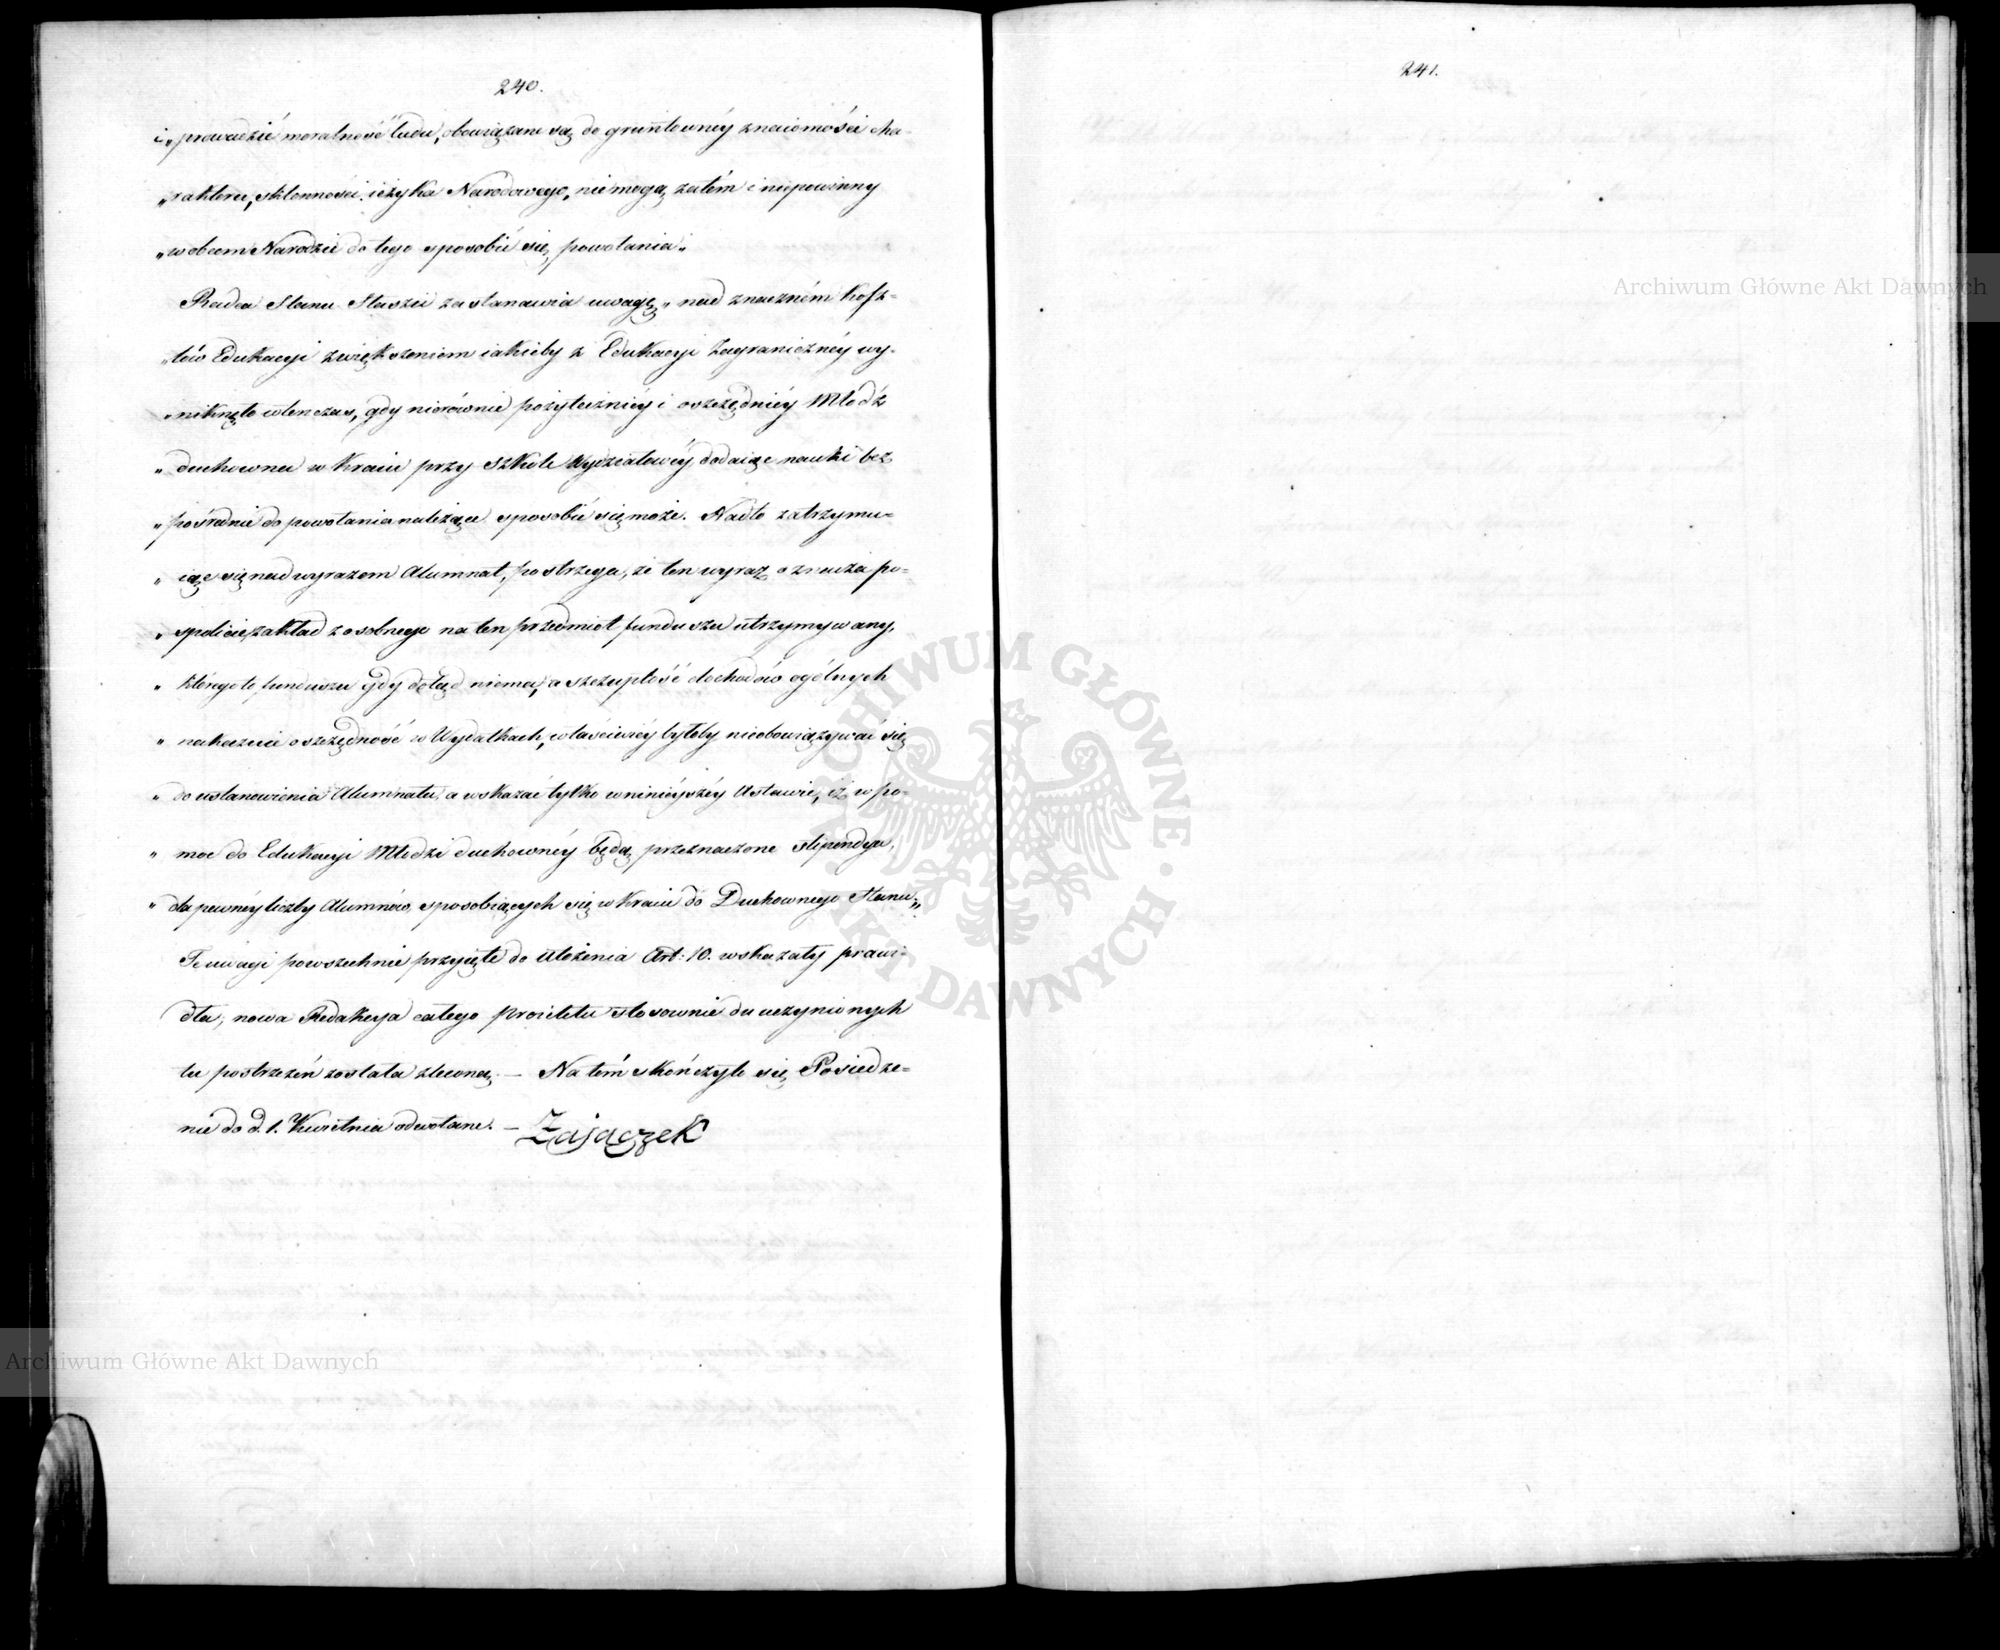 240.
i„ prowadzić moralność ludu, obowiązane są do gruntownéy znaiomości cha-
„rakteru, skłonności, ięzyka Narodowego, niemogą zatém i niepowinny
„w obcem Narodzie do tego sposobić się powołania„
Radca Stanu Staszic zastanawia uwagę „ nad znaczném kosz-
„tów Edukacyi zwiększeniem iakieby z Edukacyi Zagranicznéy wy-
„niknęło wtenczas, gdy nierównie pożyteczniéy i oszczędniéy Młodź
„ duchowna w Kraiu przy szkole Wydziałowéy, dodaiąc nauki bez
„ pośrednie do powołania należące sposobić się może. Nadto zatrzymu=
„ iąc się nad wyrazem Alumnat, postrzega, że ten wyraz oznacza po=
„ spolicie, zakład z osobnego na ten przedmiot funduszu utrzymywany,
„ którego to funduszu gdy dotąd niema, a szczupłość dochodów ogólnych
„ nakazuie oszczędność w Wydatkach, właściwiéy byłoby nieobowiązywać się
„ do ustanowienia Alumnatu, a wskazać tylko w ninieyszéy Ustawie, iż w po=
„ moc do Edukacyi Młodzi duchownéy będą przeznaczone stipendya,
„ dla pewnéy liczby Alumnów, sposobiących się w Kraiu do Duchownego Stanu„
Te uwagi powszechnie przyięte do ułożenia Art: 10. wskazały prawi-
dła; nowa Redakcya całego proiektu stosownie do uczynionych
tu postrzeżeń została zleconą. — Na tém skończyło się Posiedze=
nie do d. 1. Kwietnia odwołane. — Zajączek
241.
Archiwum Główne Akt Dawnych
Archiwum Główne Akt Dawnych
ARCHIWUM GŁÓWNE · AKT DAWNYCH ·